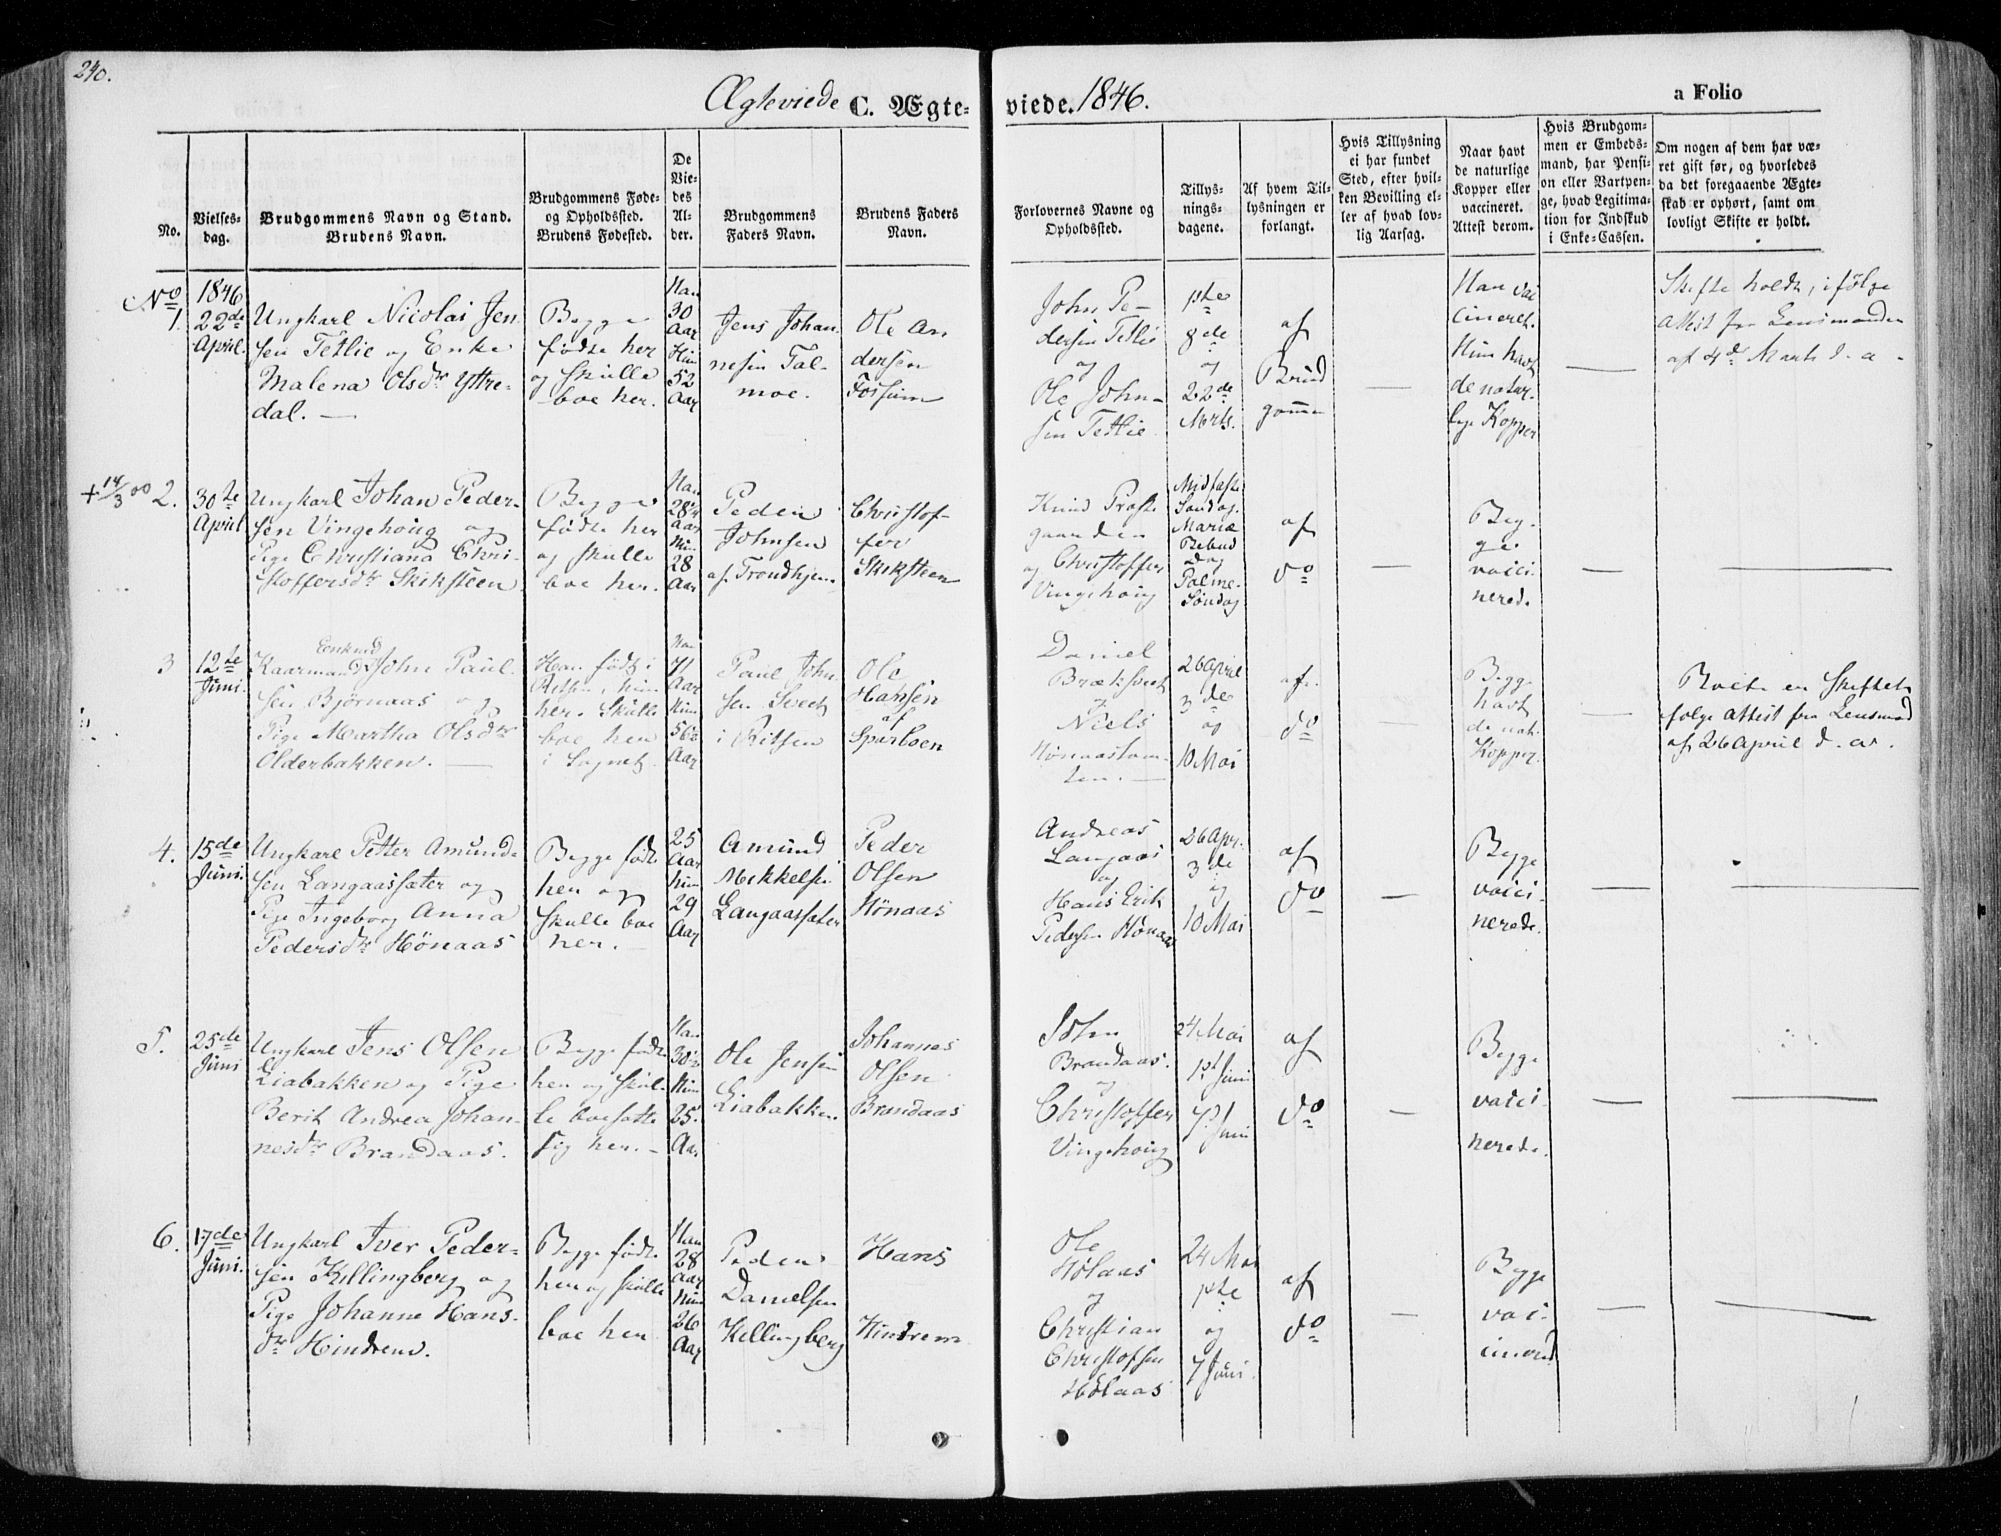 240.
Ægteviede C. Ægte-
viede. 1846.
a Folio
No.
Vielses-
dag.
Brudgommens Navn og Stand.
Brudens Navn.
Brudgommens Føde-
og Opholdssted.
Brudens Fødested.
De
Vie-
des
Al-
der.
Brudgommens
Faders Navn.
Brudens Faders
Navn.
Forlovernes Navne og
Opholdssted.
Tillys-
nings-
dagene.
Af hvem Til-
lysningen er
forlangt.
Hvis Tillysning
ei har fundet
Sted, efter hvil-
ken Bevilling el-
ler af hvad lov-
lig Aarsag.
Naar havt
de naturlige
Kopper eller
vaccineret.
Attest derom.
Hvis Brudgom-
men er Embeds-
mand, har Pensi-
on eller Vartpen-
ge, hvad Legitima-
tion for Indskud
i Enke-Cassen.
Om nogen af dem har væ-
ret gift før, og hvorledes
da det foregaaende Ægte-
skab er ophørt, samt om
lovligt Skifte er holdt.
No
1.
1846
22de
April.
Ungkarl Nicolai Jen
sen Tetlie og Enke
Malena Olsdr Yttre-
dal. —
Begge
fødte her
og skulle
boe her.
Han
30
Aar
Hun
52
Aar
Jens Johan
nesen Tal-
moe.
Ole An
dersen
Fossum
John Pe-
dersen Tetlie
og
Ole John-
sen Tetlie
1ste
8de
og
22de
Marts.
af
Brud
gomen
—
Han vac
cineret.
Hun havt
de natur-
lige Kopper
—
Skifte holdt, ifølge
Attest fra Lensmanden
af 4de Marts d. a.
+ 14/3 00 2.
30te
April
Ungkarl Johan Peder-
sen Vingehoug og
Pige Christiana Chri-
stoffersdr Skiksteen
Begge
fødte her
og skulle
boe her.
Han
28 1/4
Aar
Hun
28
Aar
Peder
Johnsen
af Trondhjem
Christof-
fer
Skiksteen
Knud Præste
gaarden
og Christoffer
Vingehoug
Midfaste
Søndag
Mariæ
Bebud
dag
Palme-
Søndag
af
do
—
Beg-
ge
vacci-
nered.
—
3
12te
Juni.
Enkemd
Kaarmand John Paul
sen Bjørnaas og
Pige Martha Olsdr
Olderbakken. —
Han født i
Ritsen, hun
her. Skulle
boe her
i Sognet.
Han
71
Aar
Hun
56 1/2
Aar
Paul John
sen Sveet
i Ritsen
Ole
Hansen
af
Sparboen
Daniel
Bræksveet
og
Niels
Hønaastom-
ten. —
26 April
3de
og
10 Mai
af
do
—
Begge
havt
de nat.
Kopper.
—
følge Attest fra Lensmd
af 26 April d. a.
4.
15de
Juni.
Ungkarl Petter Amund-
sen Langaassæter og
Pige Ingeborg Anna
Pedersdr Hönaas
Begge født
her og
skulle boe
her. —
25
Aar
Hun
29
Aar
Amund
Mikkelsen
Langaassæter
Peder
Olsen
Hönaas
Andreas
Langaas
og
Hans Erik
Pedersen Hönaas
26 Apr.
3de
og
10 Mai
af
do
—
Begge
vacci-
nerede.
—
5.
25de
Juni
Ungkarl Jens Olsen
Liabakken og Pige
Berit Andrea Johan-
nesdr Brandaas.
Begge født
her og skul-
le bosætte
sig her. —
Han
30 1/2
Hun
25
Aar
Ole Jensen
Liabakken
Johannes
Olsen
Brandaas
John
Brandaas.
og
Christoffer
Vingehoug
24 Mai
1st Juni
7 Juni
af
do
—
Begge
vacci-
nerede.
—
6.
17de
Juni.
Ungkarl Iver Peder-
sen Killingberg og
Pige Johanne Hans-
dr Hindrem.
Begge født
her og skulle
boe her
Han
28
Aar
Hun
26
Aar
Peder
Danielsen
Killingberg
Hans
Hindrem
Ole
Hölaas
og
Christian
Christofsen
Hölaas
24 Mai
1ste
og
7 Juni
af
do
—
Begge
vac-
cinered
—